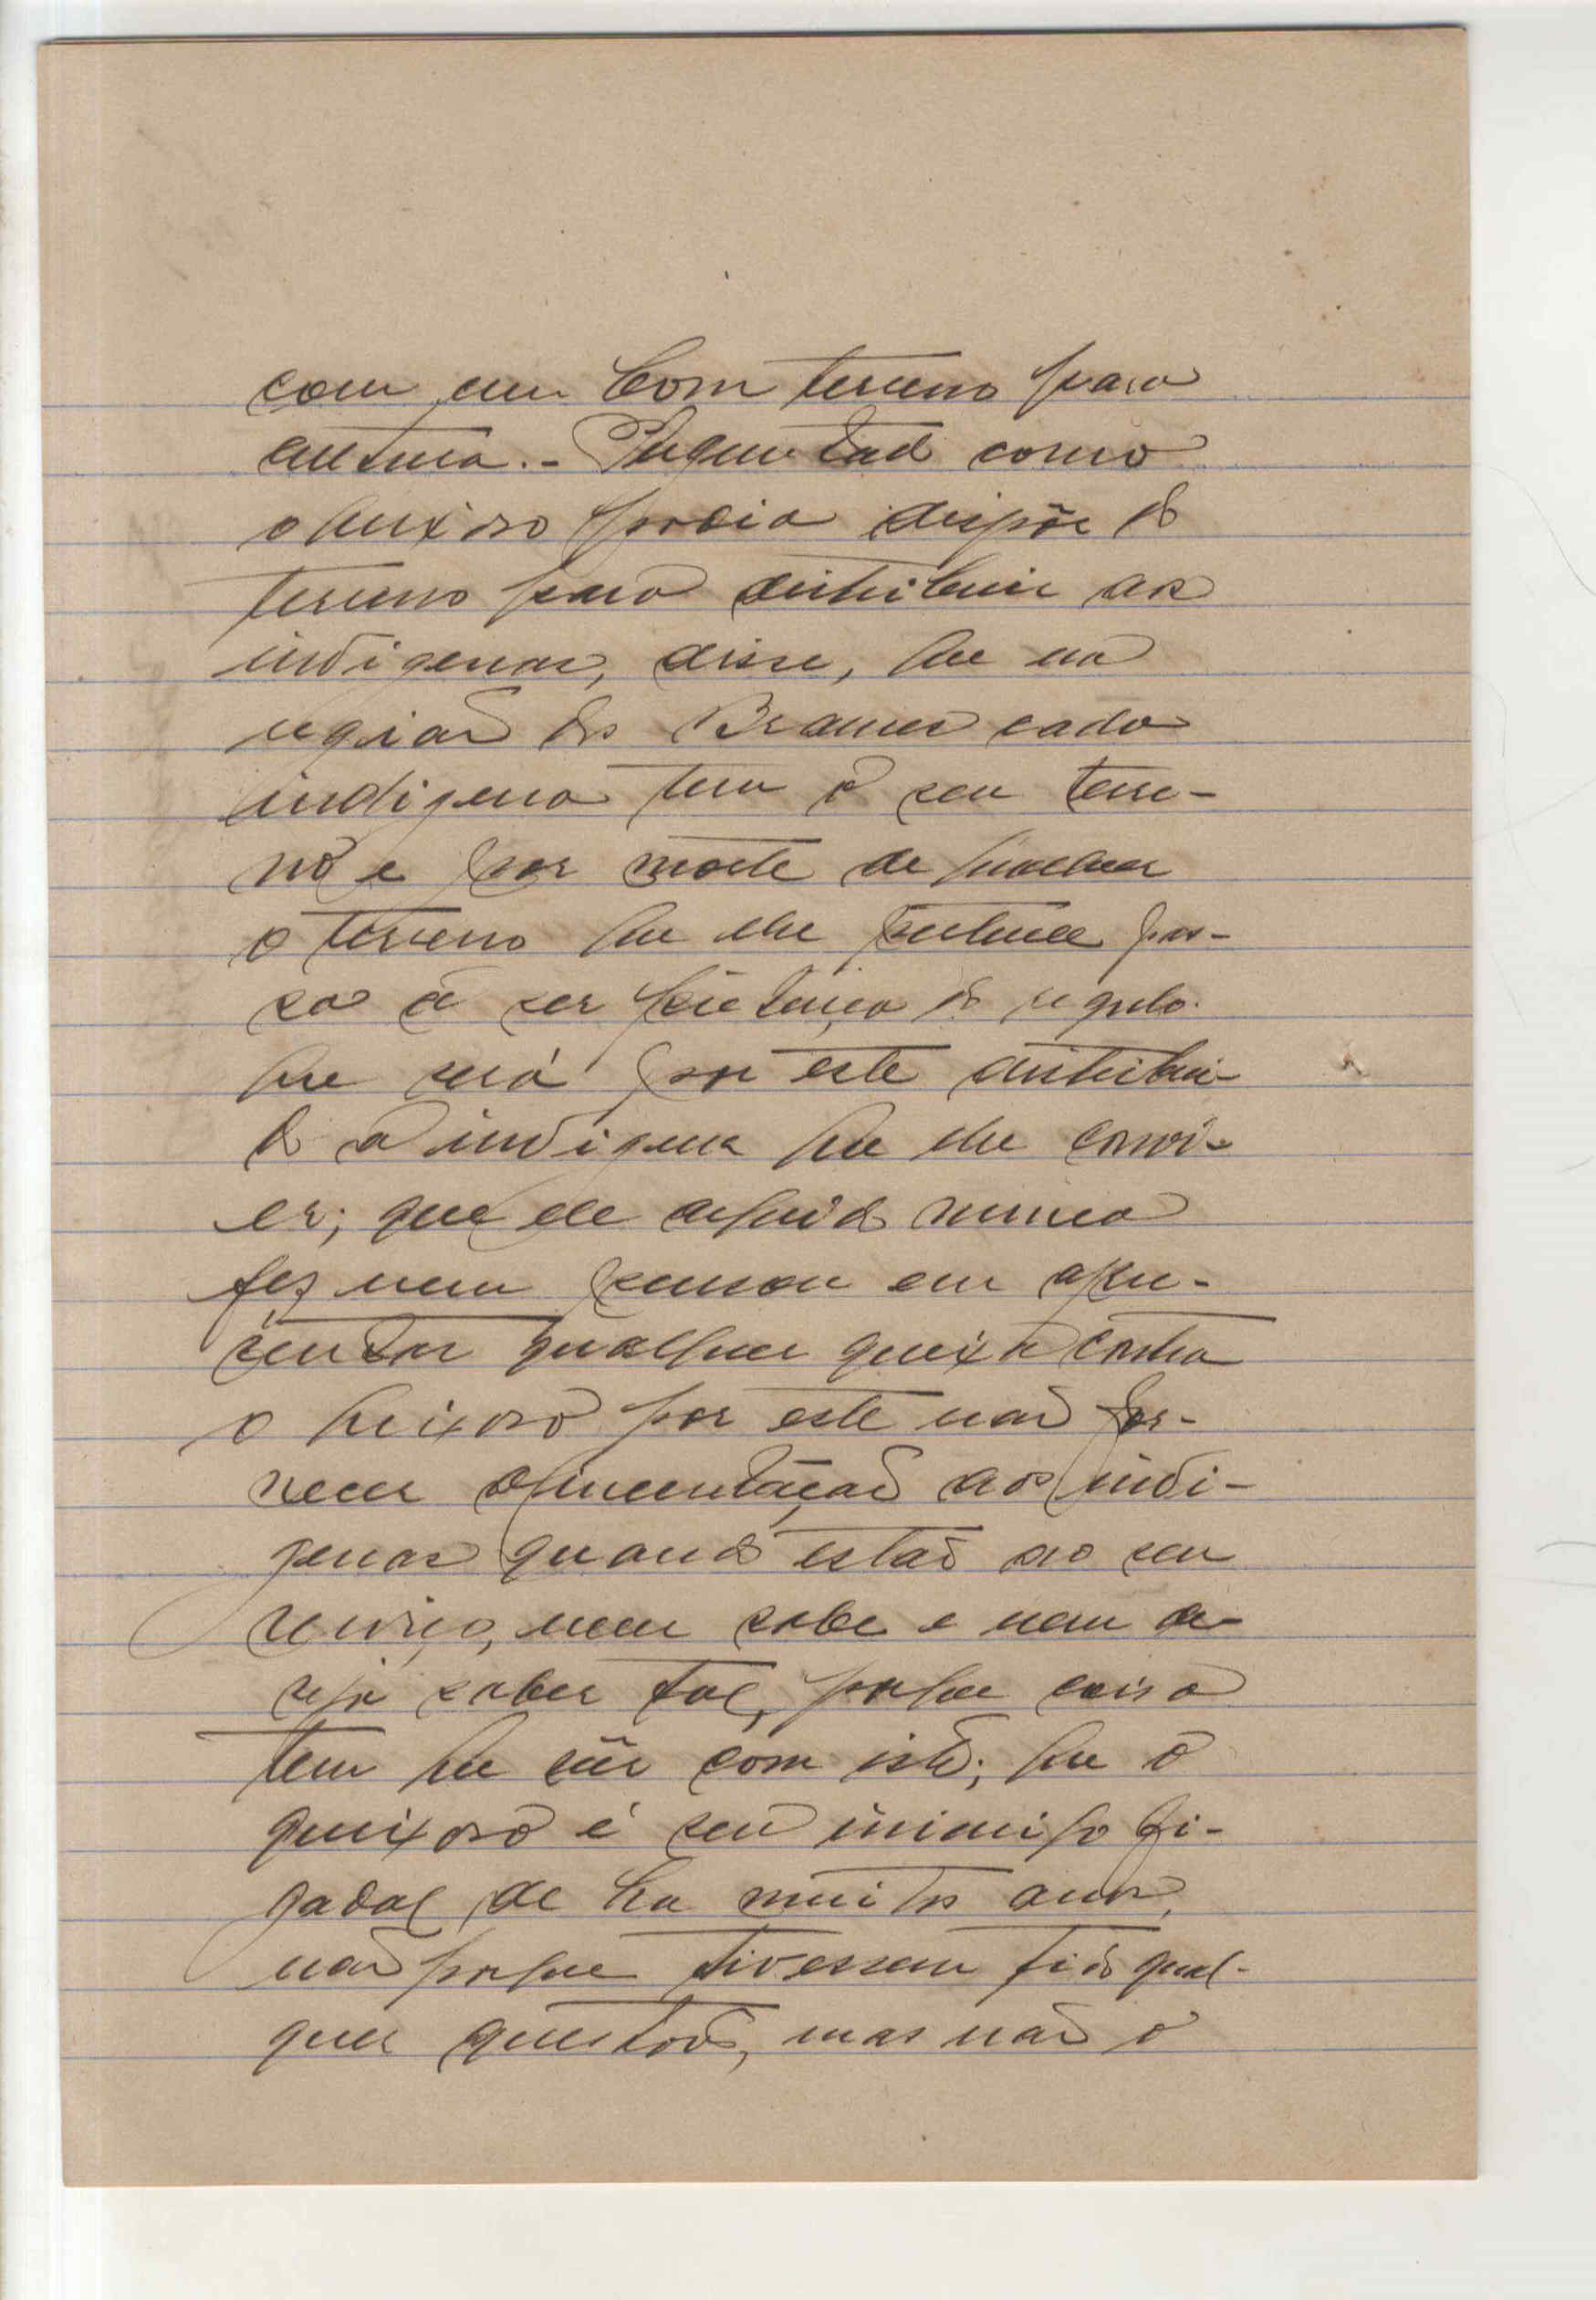 com um bom terreno para
cultura. - Perguntado como
o queixoso podia dispôr do
terreno para distribuir aos
indigenas, disse, que na
região dos Brames cada
indigena tem o seu terre-
no e por morte de qualquer
o terreno que lhe pertence pas-
sa a ser pertença do regulo
que será por este distribui-
do a indigena que lhe convi-
er; que ele arguido nunca
fez nem pensou em apre-
sentar qualquer queixa contra
o queixoso por este não for-
necer alimentação aos indi-
genas quando estão ao seu
serviço, nem sabe e nem de-
seja saber tal, porque coisa
tem que vêr com isto; que o
queixoso é seu inimigo fi-
gadal de ha muitos anos,
não porque tivessem tido qual-
quer questão, mas não o